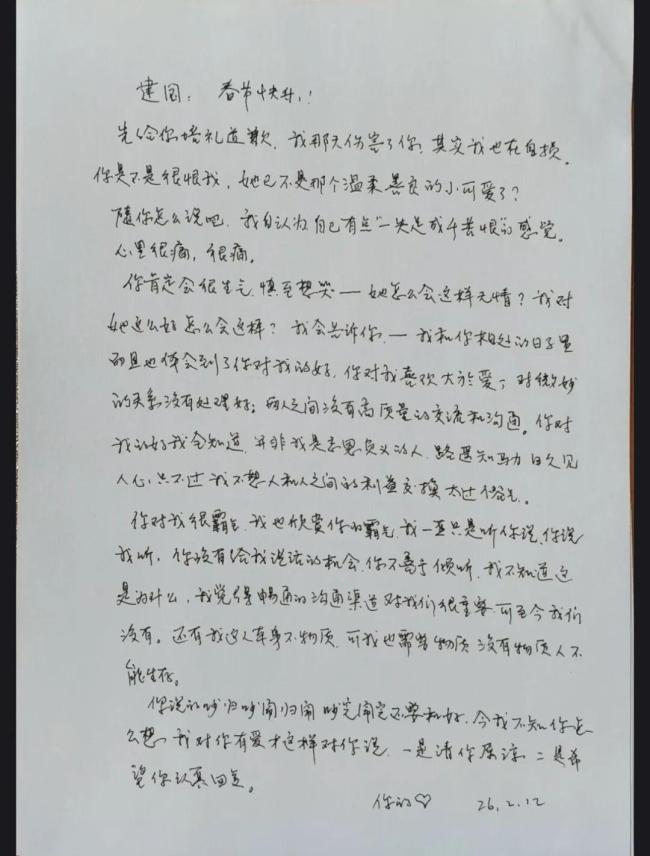 建国：春节快乐！
先给你赔礼道歉，我那天伤害了你，其实我也在自损。
你是不是很恨我，她已不是那个温柔善良的小可爱了？
随你怎么说吧，我自认为自己有点“一失足成千苦恨”的感觉。
心里很痛，很痛。
你肯定会很生气 慎至想哭——她怎么会这样无情？我对
她这么好怎么会这样？我会告诉你，—我和你相处的日子里
而且也体会到了你对我的好，你对我喜欢大於爱，对微妙
的关系没有处理好；两人之间没有高质量的交流和沟通。你对
我的好我全知道，并非我是忘恩负义的人，路遥知马力 日久见
人心，只不过我不想人和人之间的利益交换太过俗气。
你对我很霸气，我也欣赏你的霸气，我一直只是听你说，你说
我听，你没有给我说话的机会，你不善于倾听，我不知道这
是为什么，我觉得畅通的沟通渠道对我们很重要，可至今我们
没有。还有我这人本身不物质，可我也需要物质 没有物质人不
能生存。
你说的吵归吵闹归闹 吵完闹完还要和好，今我不知你怎
么想，我对你有爱才这样对你说，一是请你原谅 二是希
望你认真回复。
你的♡ 26.2.12